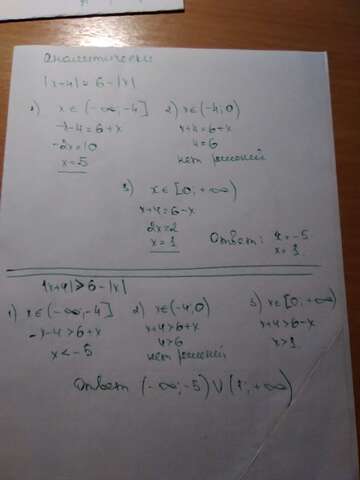 аналитически
|x+4| = 6 - |x|
1) x ∈ (-∞; -4] 2) x ∈ (-4; 0)
-x-4 = 6+x x+4 = 6+x
-2x = 10 4 = 6
x = 5 нет решений
3) x ∈ [0; +∞)
x+4 = 6-x
2x = 2
x = 1 Ответ: x = -5
x = 1.
|x+4| > 6 - |x|
1) x ∈ (-∞; -4] 2) x ∈ (-4; 0) 3) x ∈ [0; +∞)
-x-4 > 6+x x+4 > 6+x x+4 > 6-x
x < -5 4 > 6 x > 1
нет решений
Ответ (-∞; -5) ∪ (1; +∞)